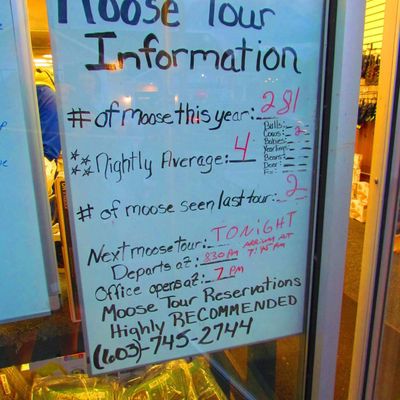 Moose Tour
Information
# of moose this year: 281
** Nightly Average: 4
Bulls:
Cows: 2
Babies:
Yearlings:
Bears:
Deer:
# of moose seen last tour: 2
Next moose tour: TONIGHT
Departs at: 830 PM ARRIVAL AT 7:45 PM
Office opens at: 7 PM
Moose Tour Reservations
Highly RECOMMENDED
(603)-745-2744